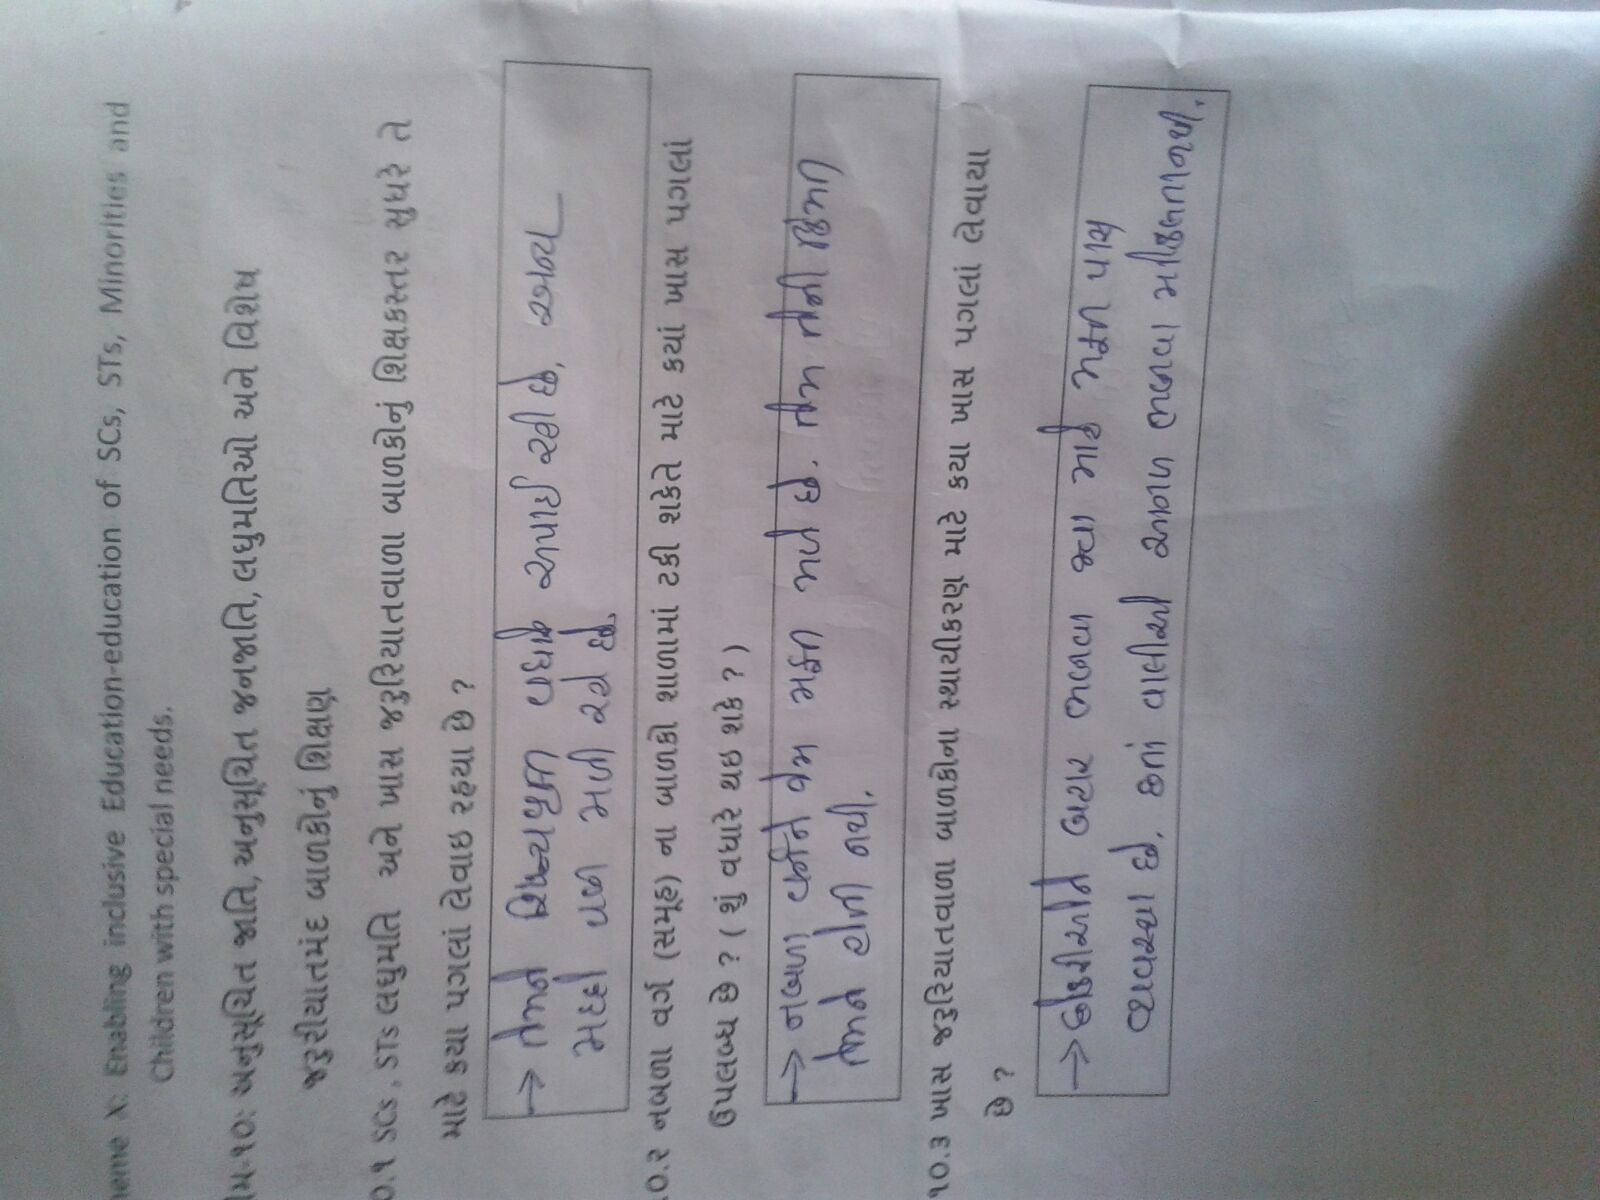 heme X: Enabling inclusive Education-education of SCs, STs, Minorities and
Children with special needs.
ીમ-૧૦: અનુસૂચિત જાતિ, અનુસૂચિત જનજાતિ, લઘુમતિઓ અને વિશેષ
જરુરીયાતમંદ બાળકોનું શિક્ષણ
૦.૧ SCs, STs લઘુમતિ અને ખાસ જરુરિયાતવાળા બાળકોનું શિક્ષકસ્તર સુધરે તે
માટે કયા પગલાં લેવાઇ રહ્યા છે ?
→ તેમને શિષ્યવૃત્તિ વધારે અપાઈ રહી છે, અન્ય
મદદો પણ મળી રહે છે.
૦.૨ નબળા વર્ગ (સમૂહ) ના બાળકો શાળામાં ટકી શકેતે માટે કયાં ખાસ પગલાં
ઉપલબ્ધ છે ? ( શું વધારે થઇ શકે ? )
→ નબળા વર્ગને જેમ મફત મળે છે. તેમ તેની કિંમત
તેમને હોતી નથી.
૧૦.૩ ખાસ જરુરિયાતવાળા બાળકોના સ્થાયીકરણ માટે કયા ખાસ પગલાં લેવાયા
છે ?
→ છોકરીઓને બહાર ભણવા જવા માટે મફત પાસ
વ્યવસ્થા છે. છતાં વાલીઓ આગળ ભણવા મોકલતા નથી.